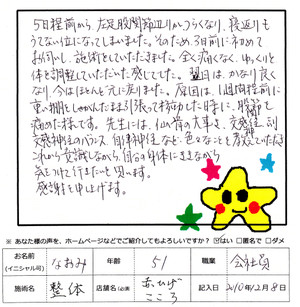 5日程前から、左足股関節辺りがつらくなり、寝返りも
うてない位になってしまいました。そのため、3日前に初めて
お伺いし、施術をしていただきました。全く痛くなく、ゆっくりと
体を調整していただいた感じでした。翌日は、かなり良く
なり、今はほとんど元に戻りました。原因は、1週間程前に
重い物をしゃがんだまま引っ張って移動した時に、股節を
痛めた様です。先生には、仙骨の大事さ、交感神経、副
交感神経のバランス、自律神経など、色々なことを教えていただき
これから意識しながら、自分の身体にききながら
気をつけて行きたいと思います。
感謝を申し上げます。
※ あなた様の声を、ホームページなどでご紹介してもよろしいですか? ☑はい □匿名で □ダメ
お名前 (イニシャル可) なおみ 年齢 51 職業 会社員
施術名 整体 店舗名(必須) 赤ひげ こころ ご記入日 2010年2月8日